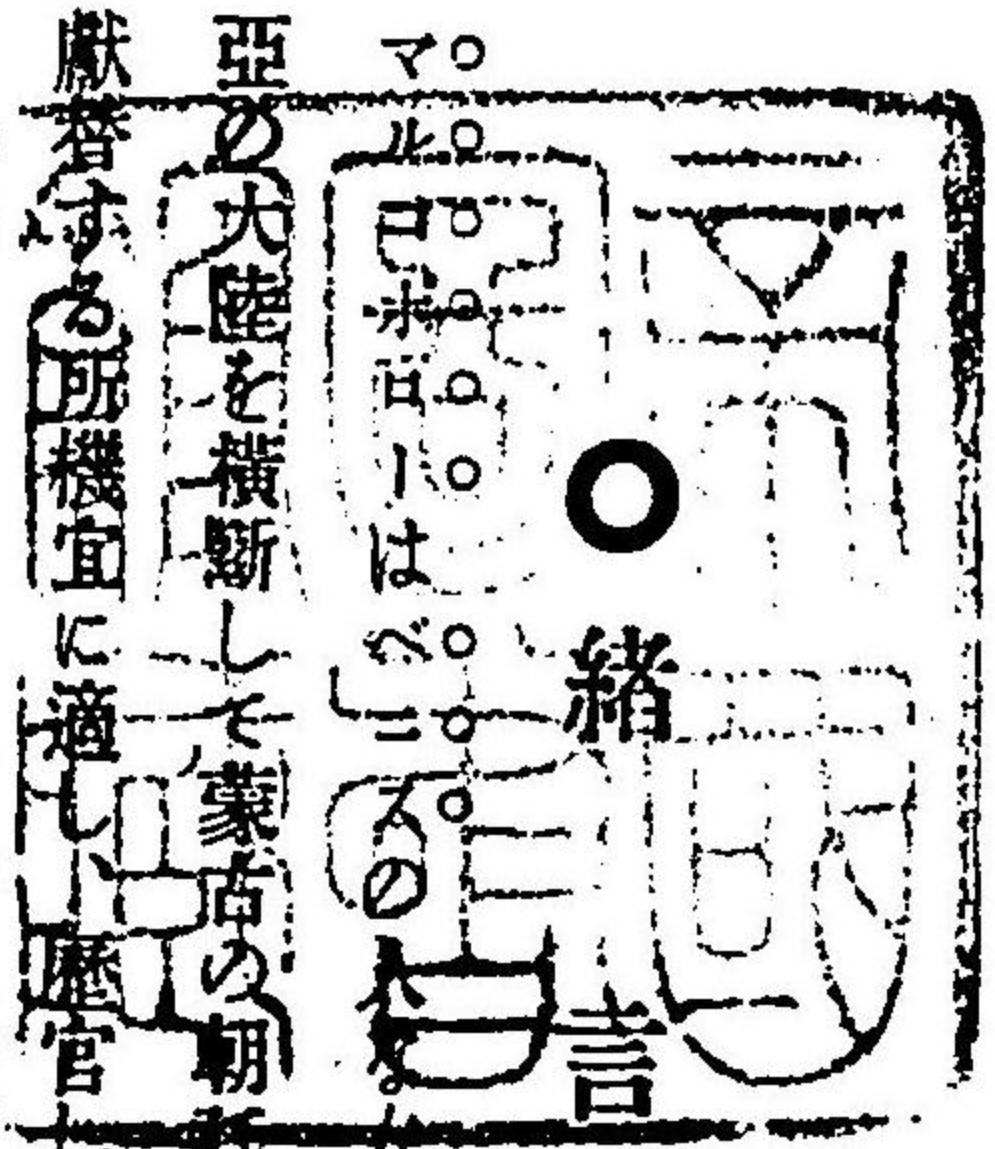 緒言
マルコポローはベニスの人な
亞の大陸を横斷して蒙古の朝
獻替する所機宜に適し、歷官